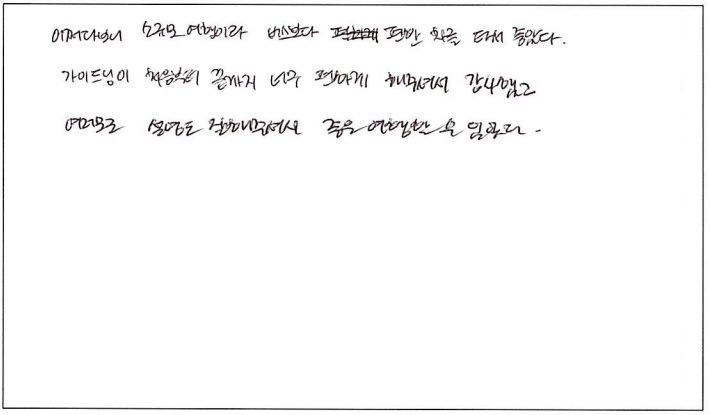 어쩌다보니 소규모 여행이라 버스보다 편하게 편한 차를 타서 좋았다.
가이드님이 처음부터 끝까지 너무 편하게 해주셔서 감사했고
여러모로 설명도 잘해주셔서 좋은 여행한 것 같다.